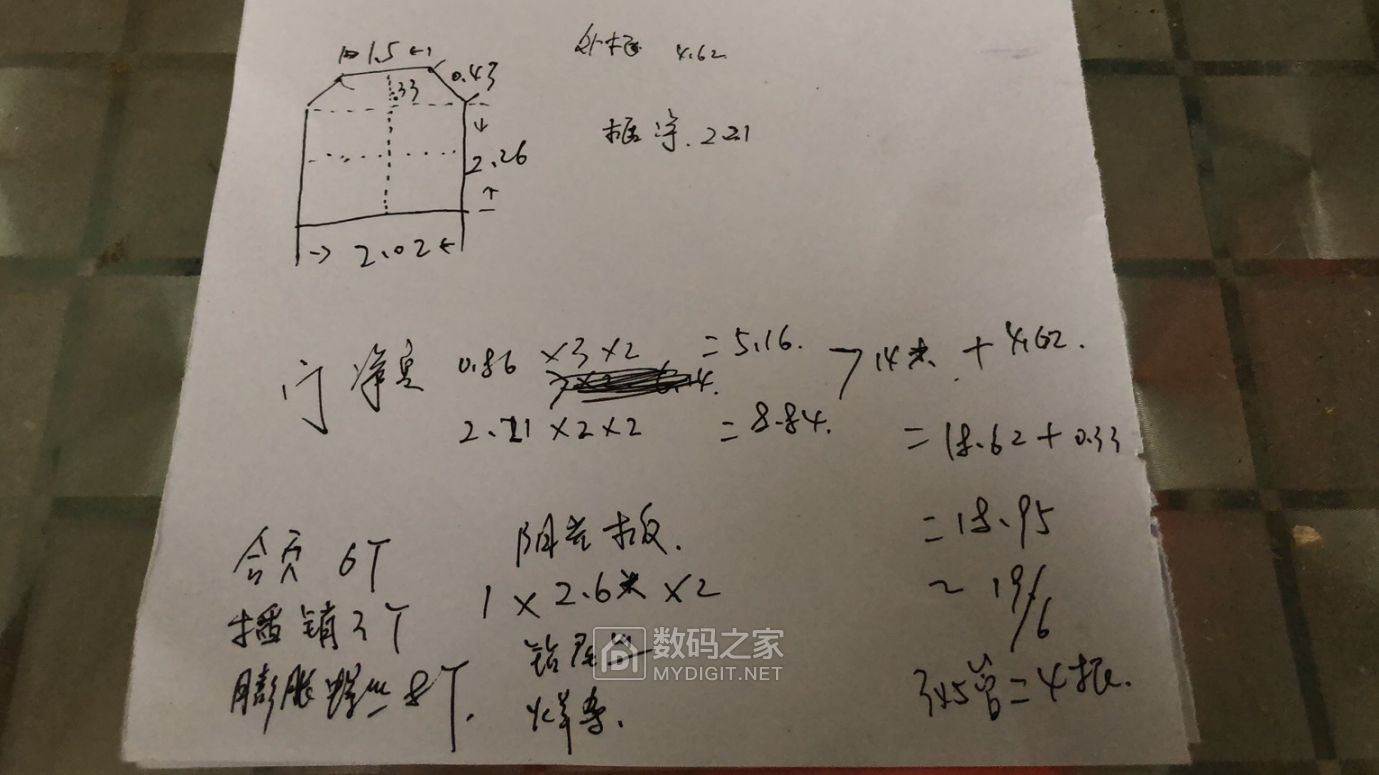 1.5
外框 4.62
0.43
.33
框净.221
2.26
2.02
门净宽 0.86 ×3×2 =5.16. 14米 + 4.62.
2.21 ×2×2 =8.84. =18.62+0.33
=18.95
合页 6个 阳光板.
1×2.6米×2 ~19/6
插销 3个
膨胀螺丝 8个. 钻尾丝
焊条. 3×5管=4根.
数码之家
MYDIGIT.NET